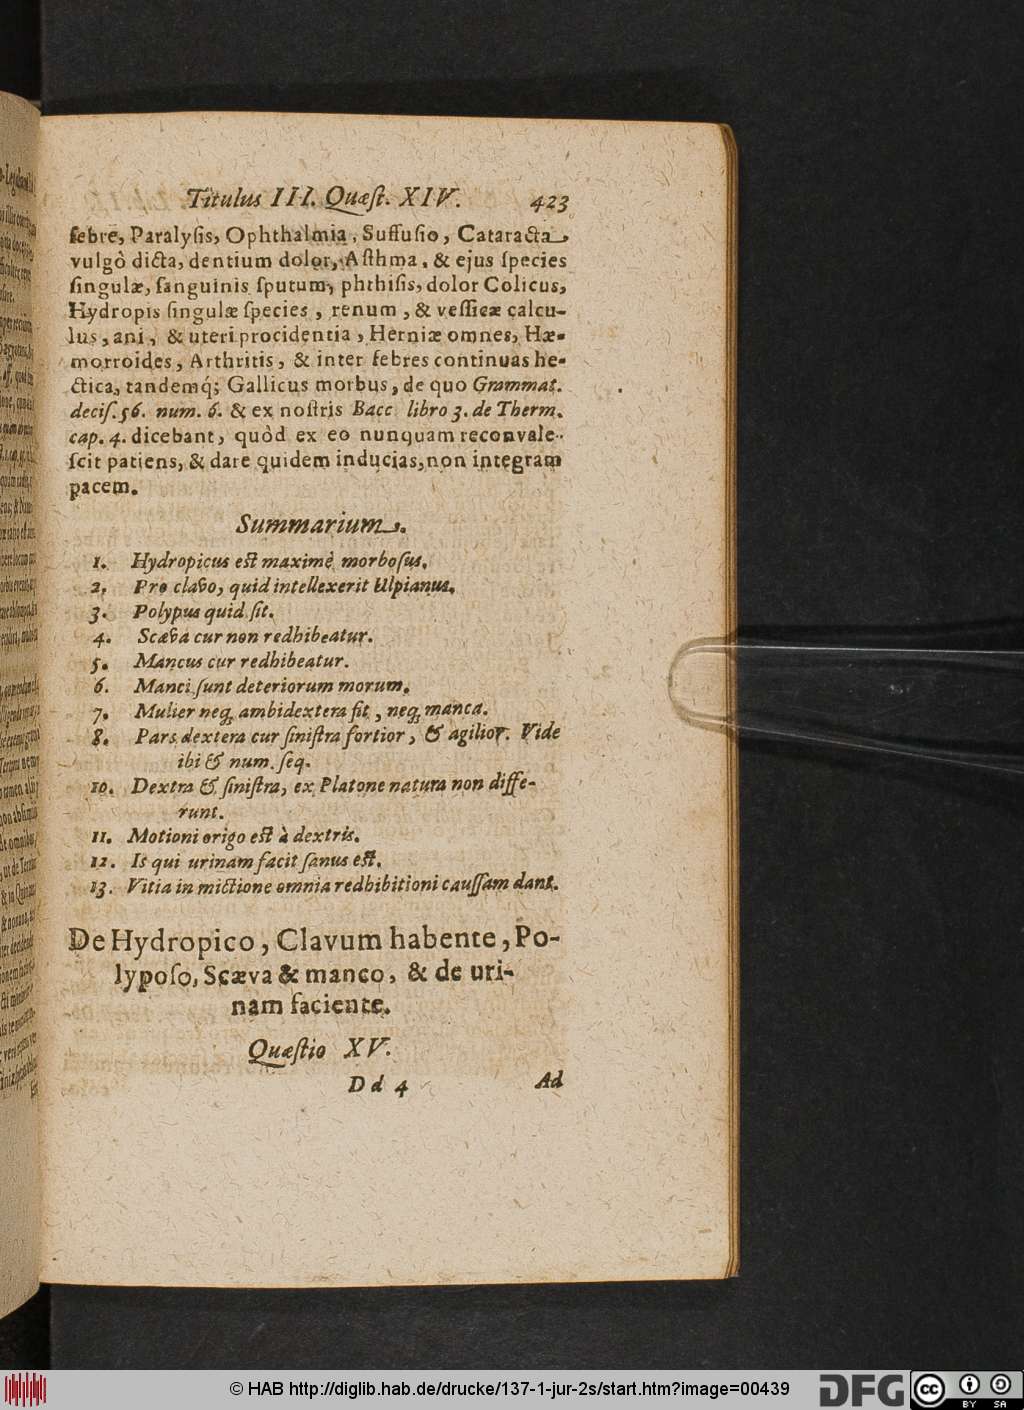 Titulus III. Quæſt. XIV. 423
febre, Paralyſis, Ophthalmia, Suffuſio, Cataracta,
vulgò dicta, dentium dolor, Aſthma, & ejus ſpecies
ſingulæ, ſanguinis ſputum, phthiſis, dolor Colicus,
Hydropis ſingulæ ſpecies, renum, & veſſicæ calcu-
lus, ani, & uteri procidentia, Herniæ omnes, Hæ-
morroides, Arthritis, & inter febres continuas he-
ctica, tandemq́; Gallicus morbus, de quo Grammat.
deciſ. 56. num. 6. & ex noſtris Bacc libro 3. de Therm.
cap. 4. dicebant, quòd ex eo nunquam reconvale-
ſcit patiens, & dare quidem inducias, non integram
pacem.
Summarium.
1. Hydropicus eſt maximè morboſus.
2. Pro clavo, quid intellexerit Ulpianus.
3. Polypus quid ſit.
4. Scæva cur non redhibeatur.
5. Mancus cur redhibeatur.
6. Manci ſunt deteriorum morum.
7. Mulier neq; ambidextera ſit, neq; manca.
8. Pars dextera cur ſiniſtra fortior, & agilior. Vide
ibi & num. ſeq.
10. Dextra & ſiniſtra, ex Platone natura non diffe-
runt.
11. Motioni origo eſt à dextris.
12. Is qui urinam facit ſanus eſt.
13. Vitia in mictione omnia redhibitioni cauſſam dant.
De Hydropico, Clavum habente, Po-
lypoſo, Scæva & manco, & de uri-
nam faciente.
Quæſtio XV.
Dd 4 Ad
© HAB http://diglib.hab.de/drucke/137-1-jur-2s/start.htm?image=00439
DFG
cc BY SA